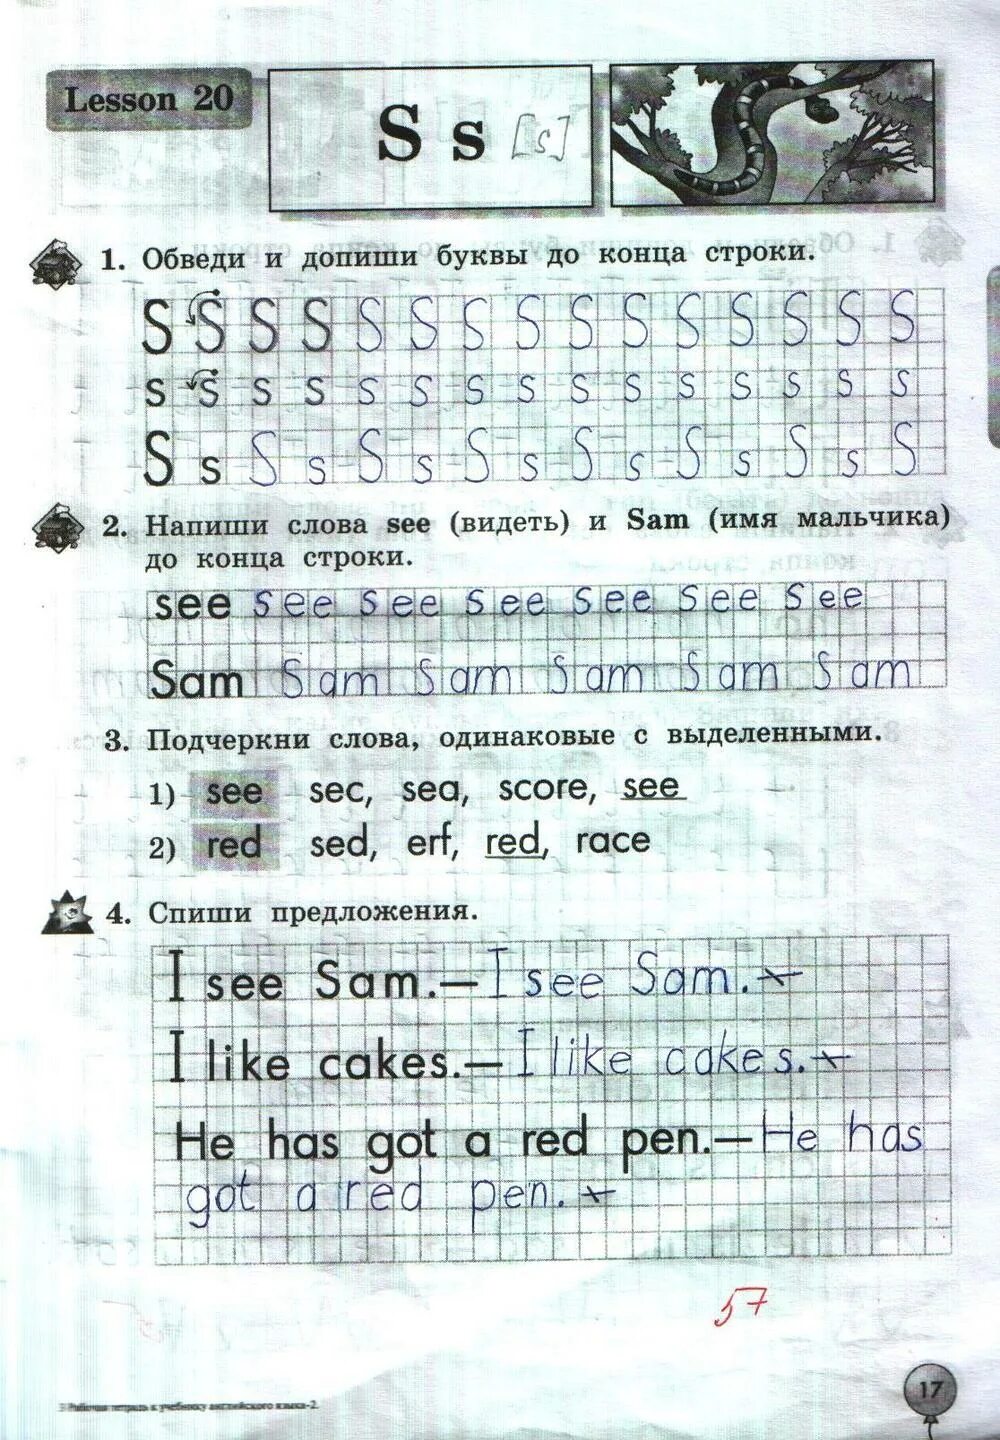 Lesson 20
S s [s]
1. Обведи и допиши буквы до конца строки.
S S S S S S S S S S S S S S S
s s s s s s s s s s s s s s s
S s S s S s S s S s S s S s S
2. Напиши слова see (видеть) и Sam (имя мальчика)
до конца строки.
see see see see see see see
Sam Sam Sam Sam Sam Sam
3. Подчеркни слова, одинаковые с выделенными.
1) see sec, sea, score, see
2) red sed, erf, red, race
4. Спиши предложения.
I see Sam.—I see Sam.
I like cakes.—I like cakes.
He has got a red pen.—He has
got a red pen.
5+
3 Рабочая тетрадь к учебнику английского языка-2.
17